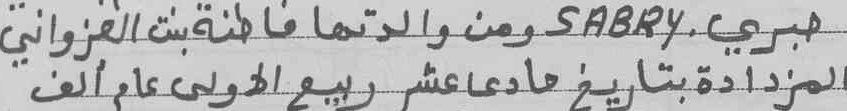 صبري. SABRY ومن والدتها فاطنة بنت الغزواني
المزدادة بتاريخ حادى عشر ربيع الاولى عام ألف